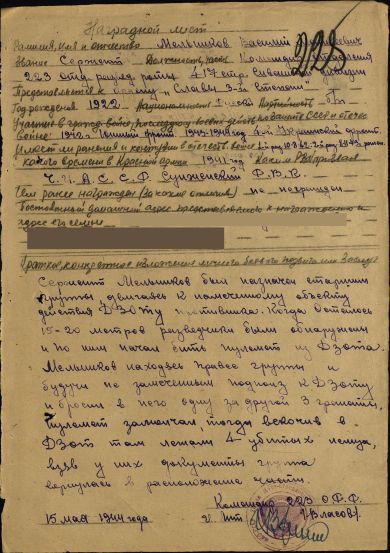 Наградной лист
Фамилия, имя и отчество Мельников Василий
Звание Сержант Должность, часть Командир отделения
223 отд. развед. роты 417 стр. Сивашской дивизии
Представляется к ордену "Славы 3-й степени"
Год рождения 1922. Национальность Партийность б/п
Участие в гражд. войне,
войне 1942 г. Южный фронт 1943-1944 год 4-й Украинский фронт.
Имеет ли ранения и контузии в отечеств. войне
С какого времени в Красной армии 1941 год Каким РВК призван
Ч. И. А. С. С. Р.
Чем ранее награжден (за какие отличия) не награжден
Постоянный домашний адрес представляемого к награждению и
адрес его семьи
Краткое, конкретное изложение личного боевого подвига или заслуг
Сержант Мельников был назначен старшим
группы двигаясь к намеченному объекту
действия ДЗОТу противника. Когда осталось
15-20 метров разведчики были обнаружены
и по ним начал бить пулемет из Дзота.
Мельников находясь правее группы и
будучи не замеченным подполз к Дзоту
и бросил в него одну за другой 3 гранаты.
пулемет замолчал, тогда вскочив в
Дзот там лежали 4 убитых немца,
взяв у них документы группа
вернулась в расположение части.
Командир 223 О.Р.Р.
15 мая 1944 года г. Лт. (Власов)